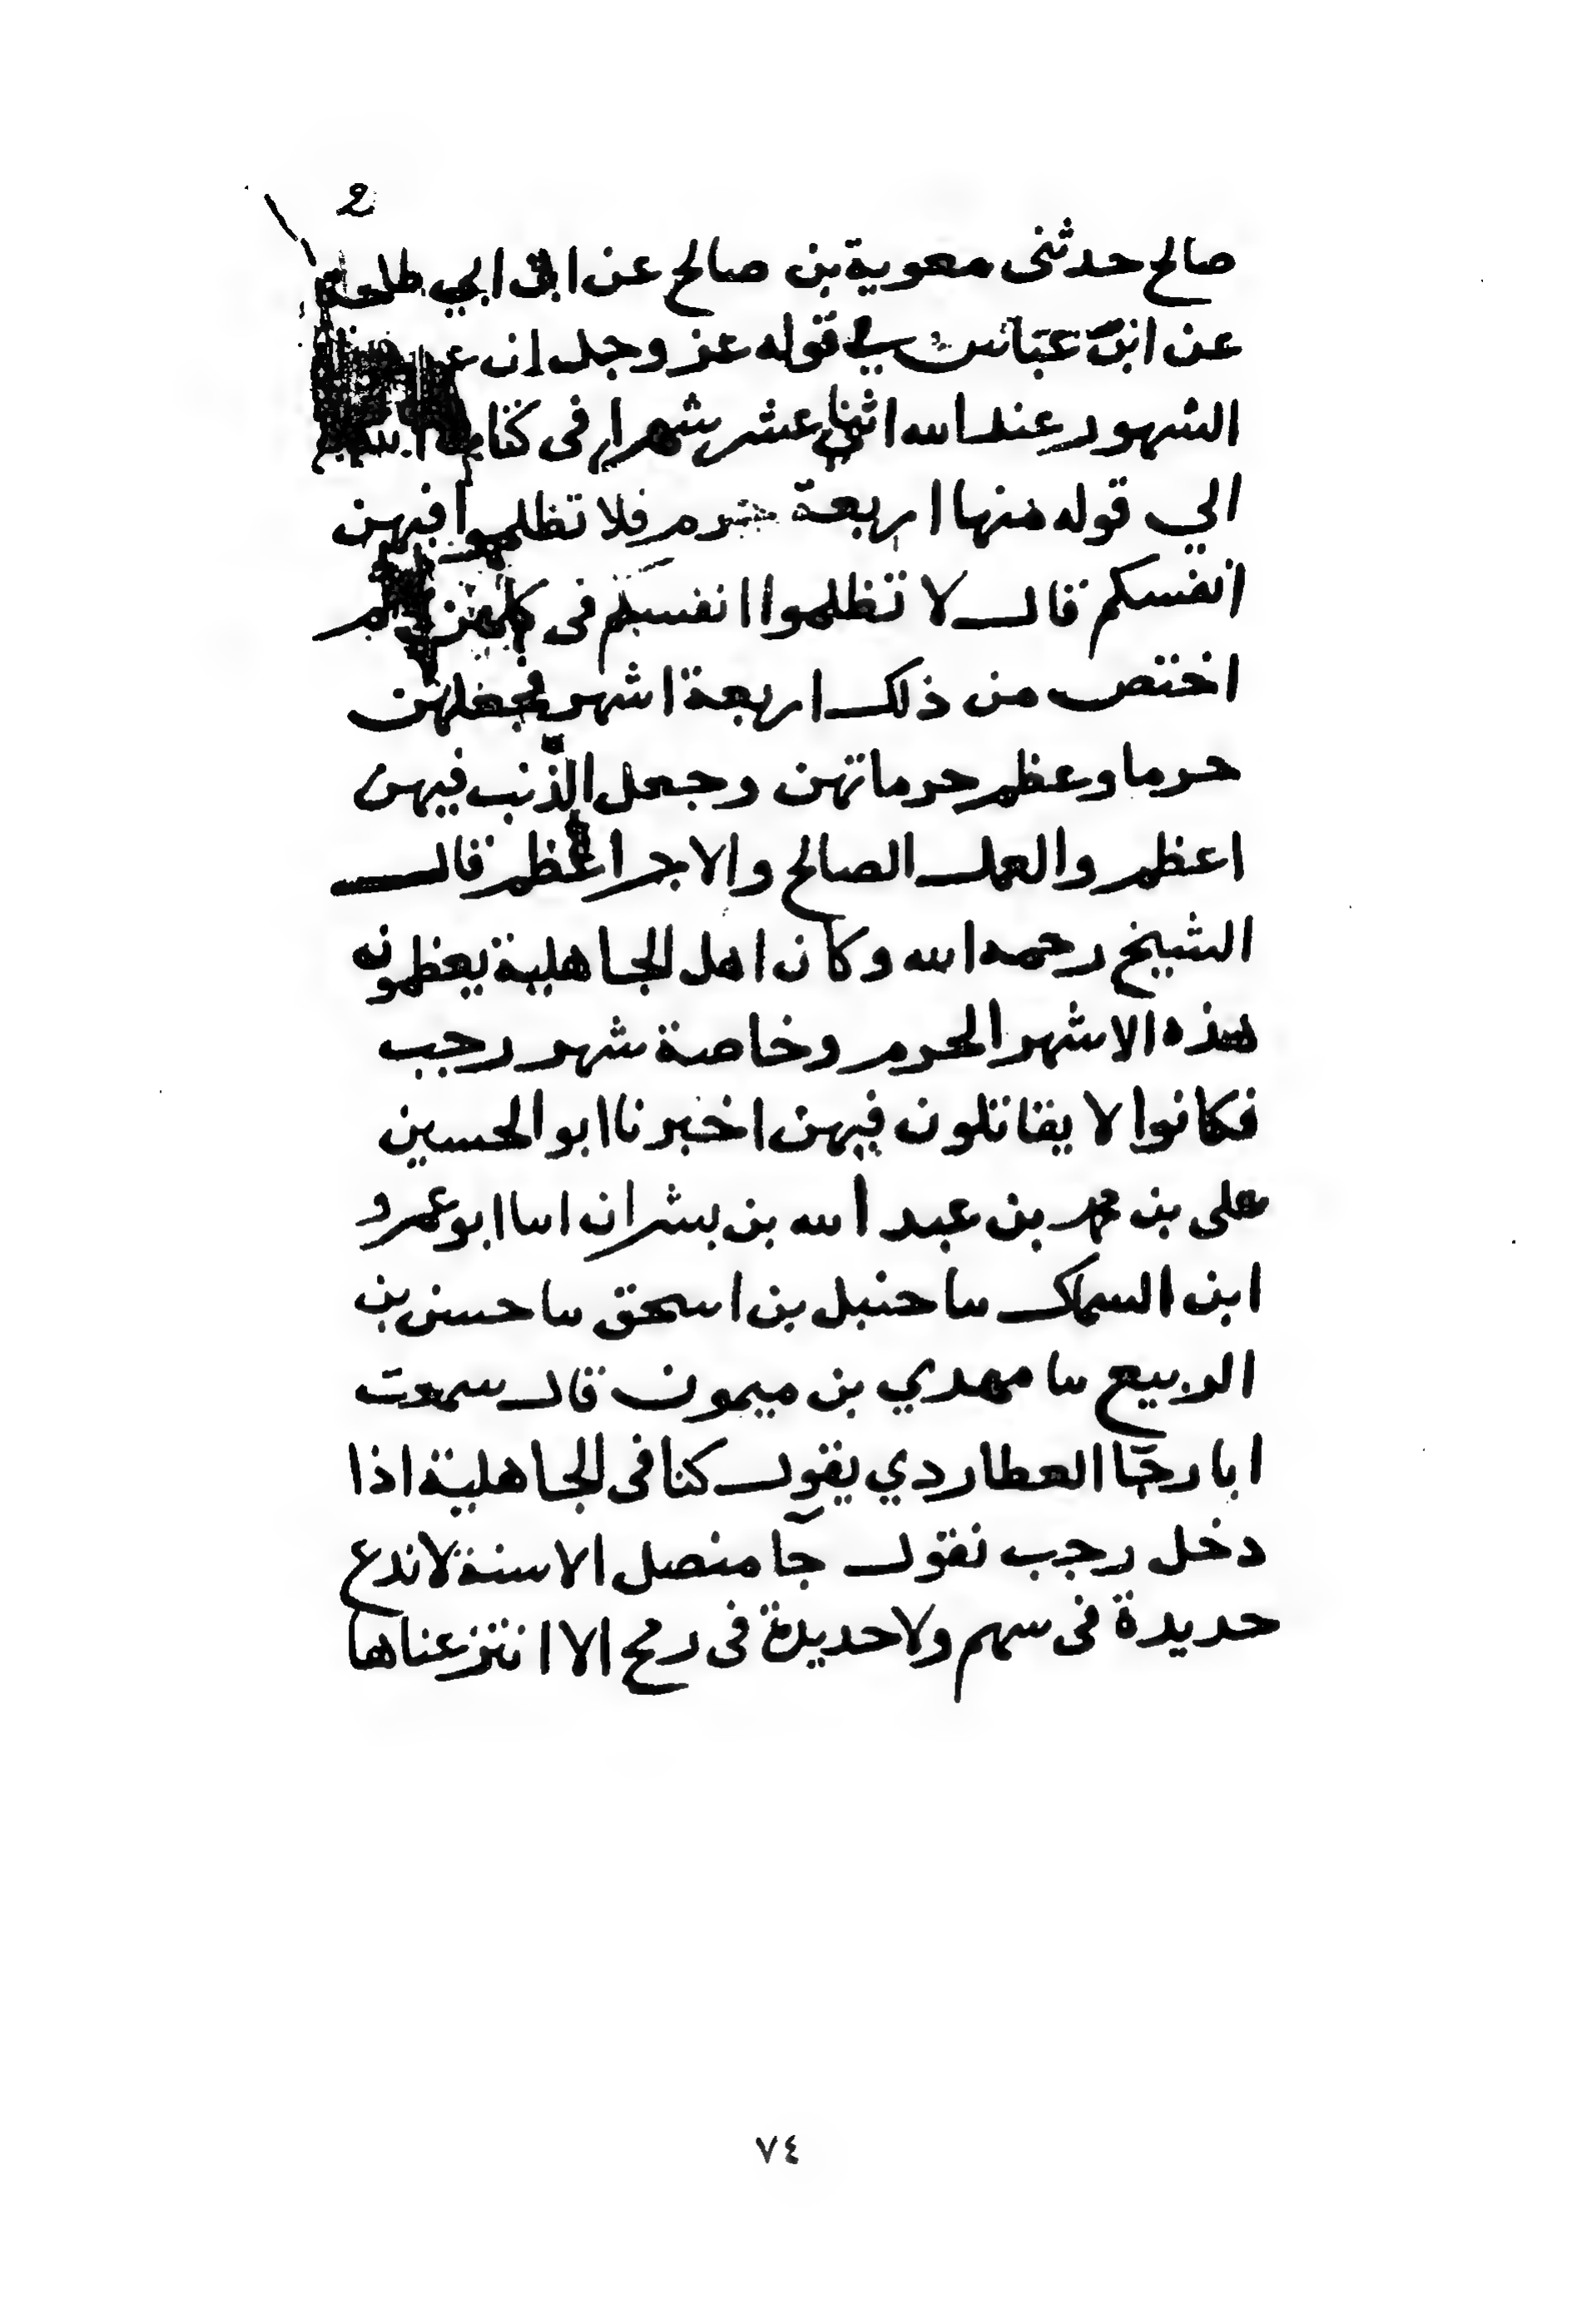 2
صالح حدثنى معوية بن صالح عن ابى ابي طلحة
عن ابن عباس في قوله عز وجل ان
الشهور عند الله اثنا عشر شهرا فى كتاب الله
الي قوله منها اربعة حرم فلا تظلموا فيهن
انفسكم قال لا تظلموا انفسكم فى كلهن ثم
اختص من ذلك اربعة اشهر فجعلهن
حرما وعظم حرماتهن وجعل الذنب فيهن
اعظم والعمل الصالح والاجر اعظم قال
الشيخ رحمه الله وكان اهل الجاهلية يعظمون
هذه الاشهر الحرم وخاصة شهر رجب
فكانوا لا يقاتلون فيهن اخبرنا ابو الحسين
على بن محمد بن عبد الله بن بشران اسا ابو عمرو
ابن السماك سا حنبل بن اسحق سا حسن بن
الربيع سا مهدي بن ميمون قال سمعت
ابا رجآ العطاردي يقول كنا فى الجاهلية اذا
دخل رجب نقول جآ منصل الاسنة لا ندع
حديدة فى سهم ولا حديدة فى رمح الا انتزعناها
٧٤